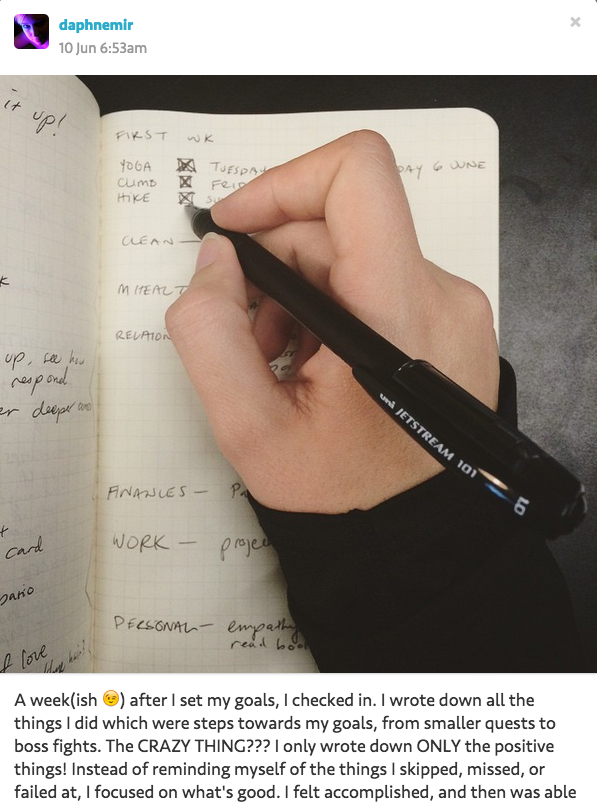 daphnemir
10 Jun 6:53am
it up!
FIRST WK
YOGA TUESDAY DAY 6 JUNE
CLIMB FRID
HIKE SU
CLEAN —
M HEALT
RELATION
up, see how
respond
er deeper
FINANCES — Pa
WORK — projec
card
PERSONAL — empathy
read boo
love
uni JETSTREAM 101
A week(ish 😉) after I set my goals, I checked in. I wrote down all the
things I did which were steps towards my goals, from smaller quests to
boss fights. The CRAZY THING??? I only wrote down ONLY the positive
things! Instead of reminding myself of the things I skipped, missed, or
failed at, I focused on what's good. I felt accomplished, and then was able